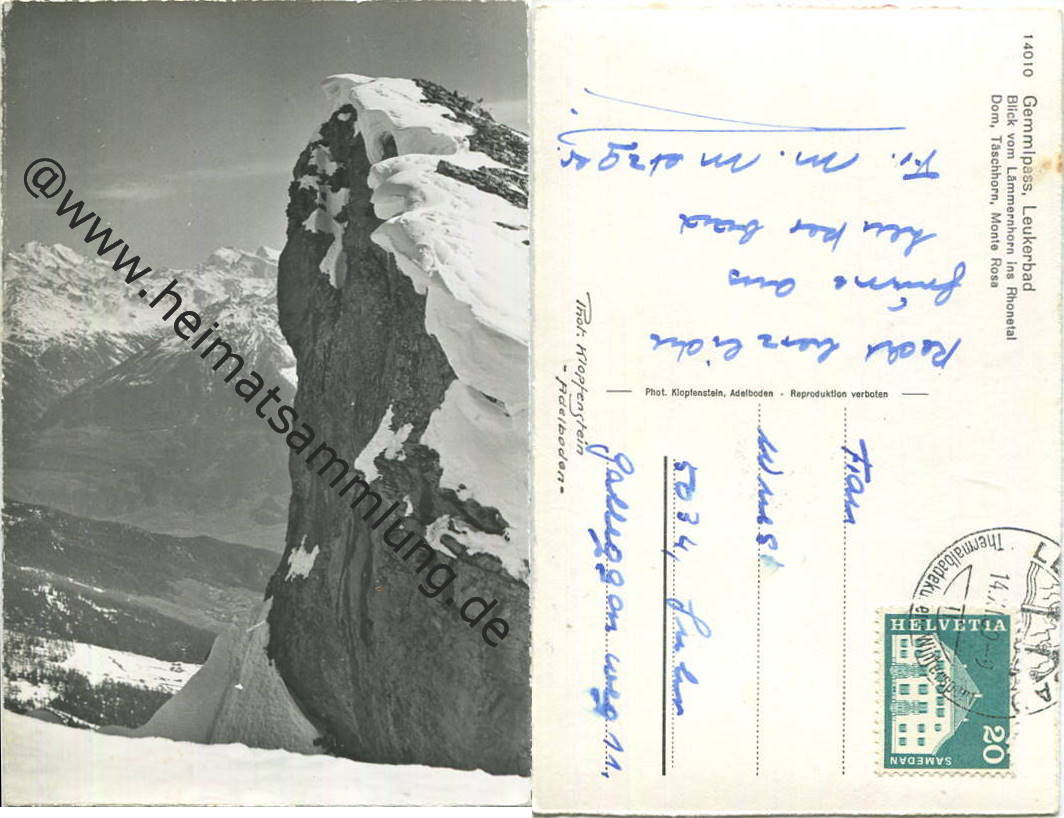 @www.heimatsammlung.de
14010 Gemmipass, Leukerbad
Blick vom Lämmernhorn ins Rhonetal
Dom, Täschhorn, Monte Rosa
Recht herzliche
Grüsse aus
Leukerbad
Fr. M. Metzger
Phot. Klopfenstein, Adelboden - Reproduktion verboten
Phot. Klopfenstein
- Adelboden -
Frau
Wüest
5034, Suhr
weg 11.
HELVETIA
20
SAMEDAN
Thermalbadekur
Wintersport
14.